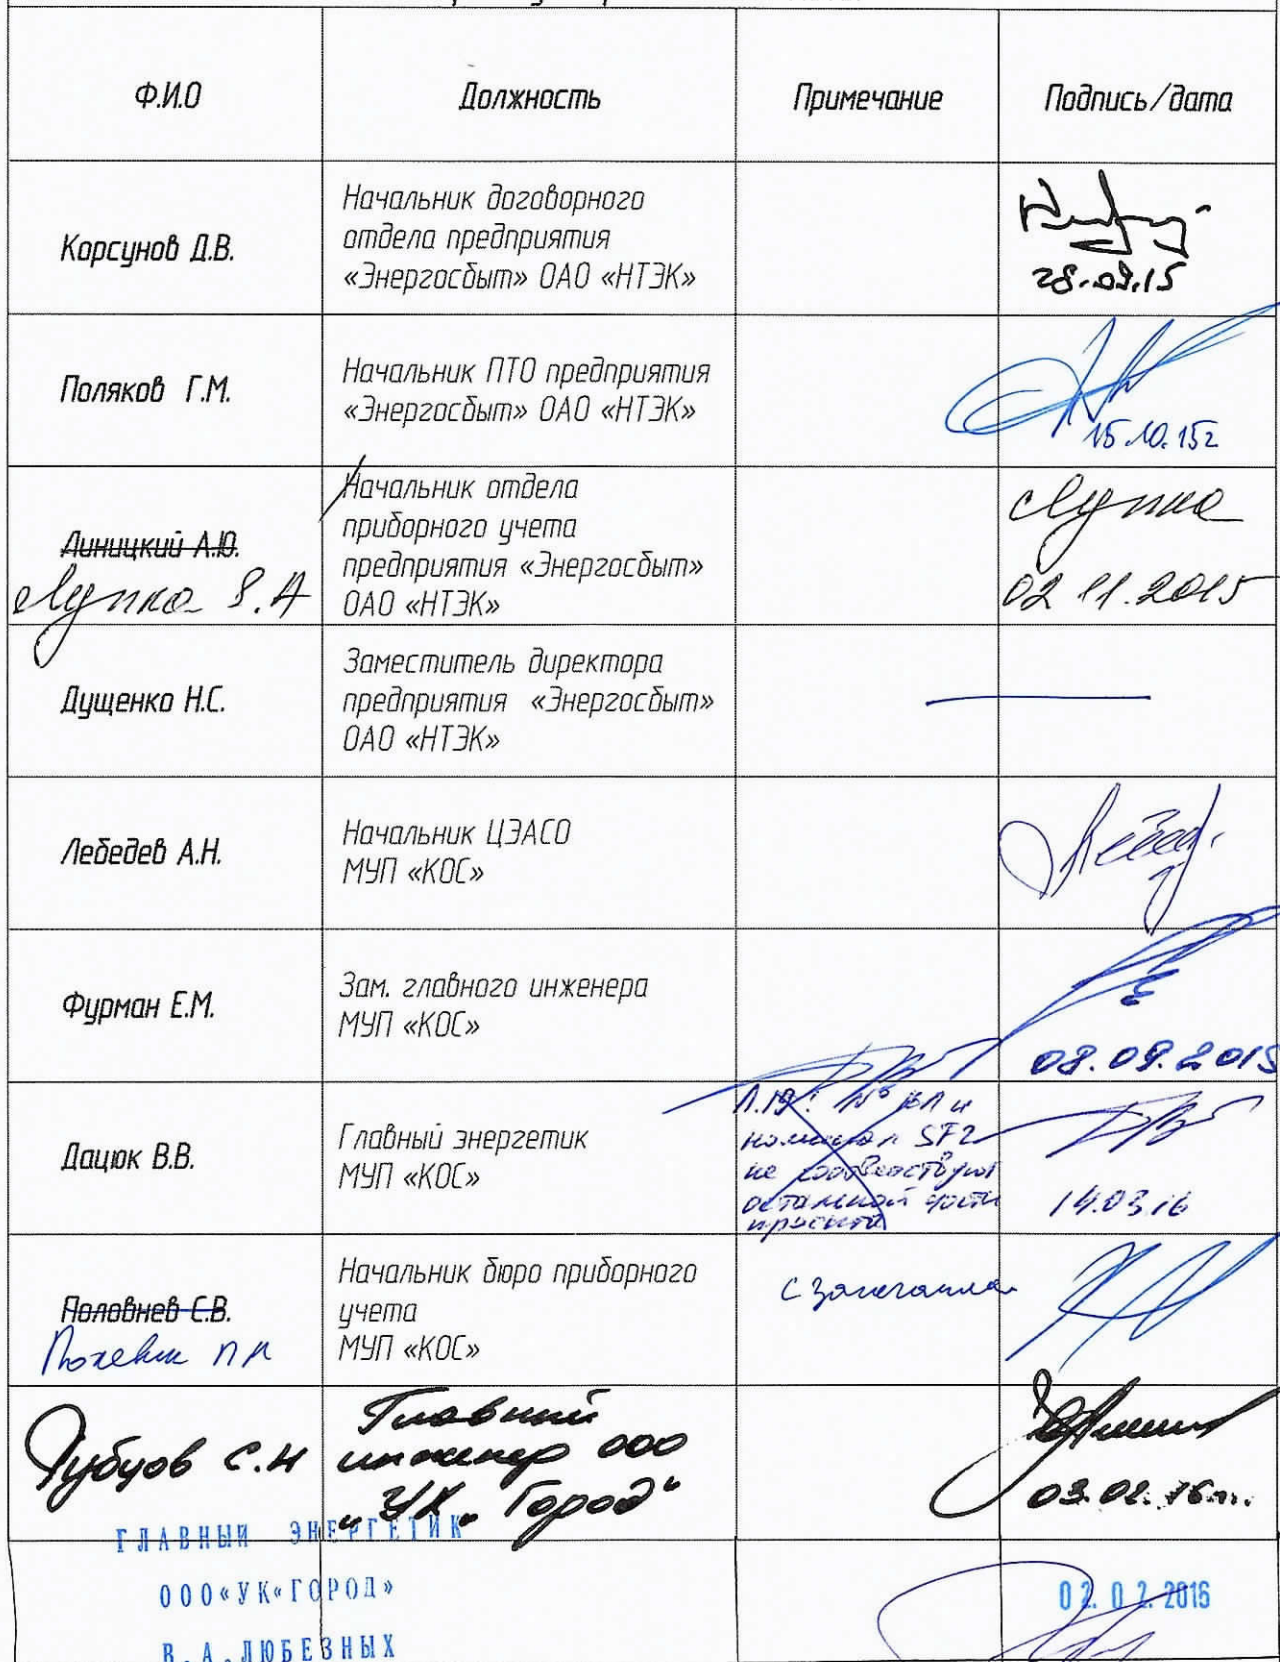 Ф.И.О Должность Примечание Подпись/дата
Корсунов Д.В.
Начальник договорного
отдела предприятия
«Энергосбыт» ОАО «НТЭК»
28.09.15
Поляков Г.М.
Начальник ПТО предприятия
«Энергосбыт» ОАО «НТЭК»
15.10.15г
Линицкий А.Ю.
Лупко
Начальник отдела
приборного учета
предприятия «Энергосбыт»
ОАО «НТЭК»
Лупко
02 11.2015
Дущенко Н.С.
Заместитель директора
предприятия «Энергосбыт»
ОАО «НТЭК»
Лебедев А.Н.
Начальник ЦЭАСО
МУП «КОС»
Фурман Е.М.
Зам. главного инженера
МУП «КОС»
08.09.2015
Дацюк В.В.
Главный энергетик
МУП «КОС»
номинал SF2
не соответствуют
остальной части
проекта
14.03.16
Половнев С.В.
Начальник бюро приборного
учета
МУП «КОС»
С замечанием
С.Н
Главный
инженер ООО
"УК" Город"
03.02.16г.
ГЛАВНЫЙ ЭНЕРГЕТИК
ООО«УК«ГОРОД»
В.А.ЛЮБЕЗНЫХ
02.02.2016